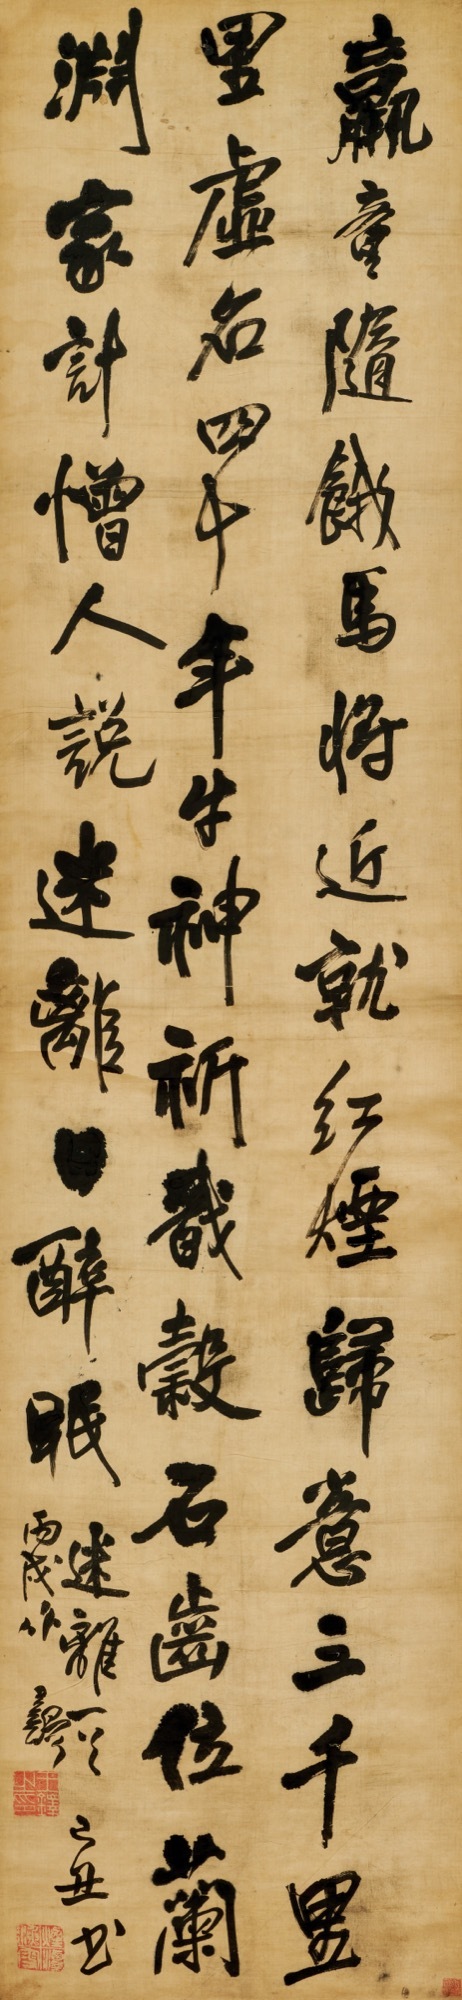 羸童隨餓馬將近就紅煙歸意三千里
虛名四十年牛神祈戩穀石齒位蘭
淵家計憎人說迷離日醉眠
迷離一 己丑書
丙戌作